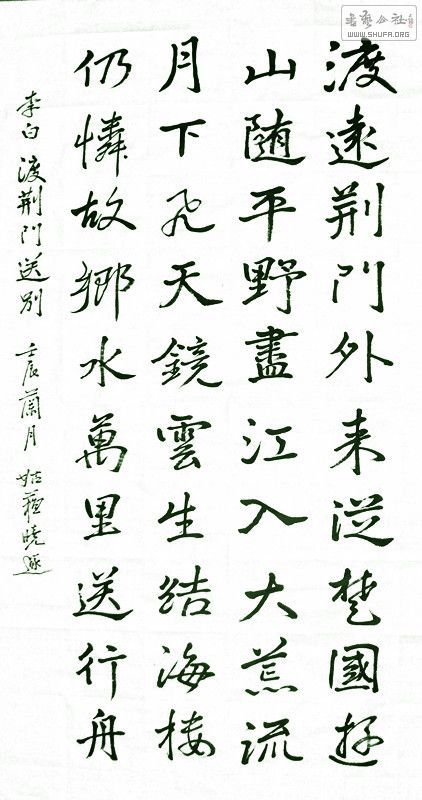 書艺公社
WWW.SHUFA.ORG
渡遠荆門外来從楚國遊
山随平野盡江入大荒流
月下飛天鏡雲生結海楼
仍憐故鄉水萬里送行舟
李白渡荆門送别 壬辰蘭月 姑蘇曉